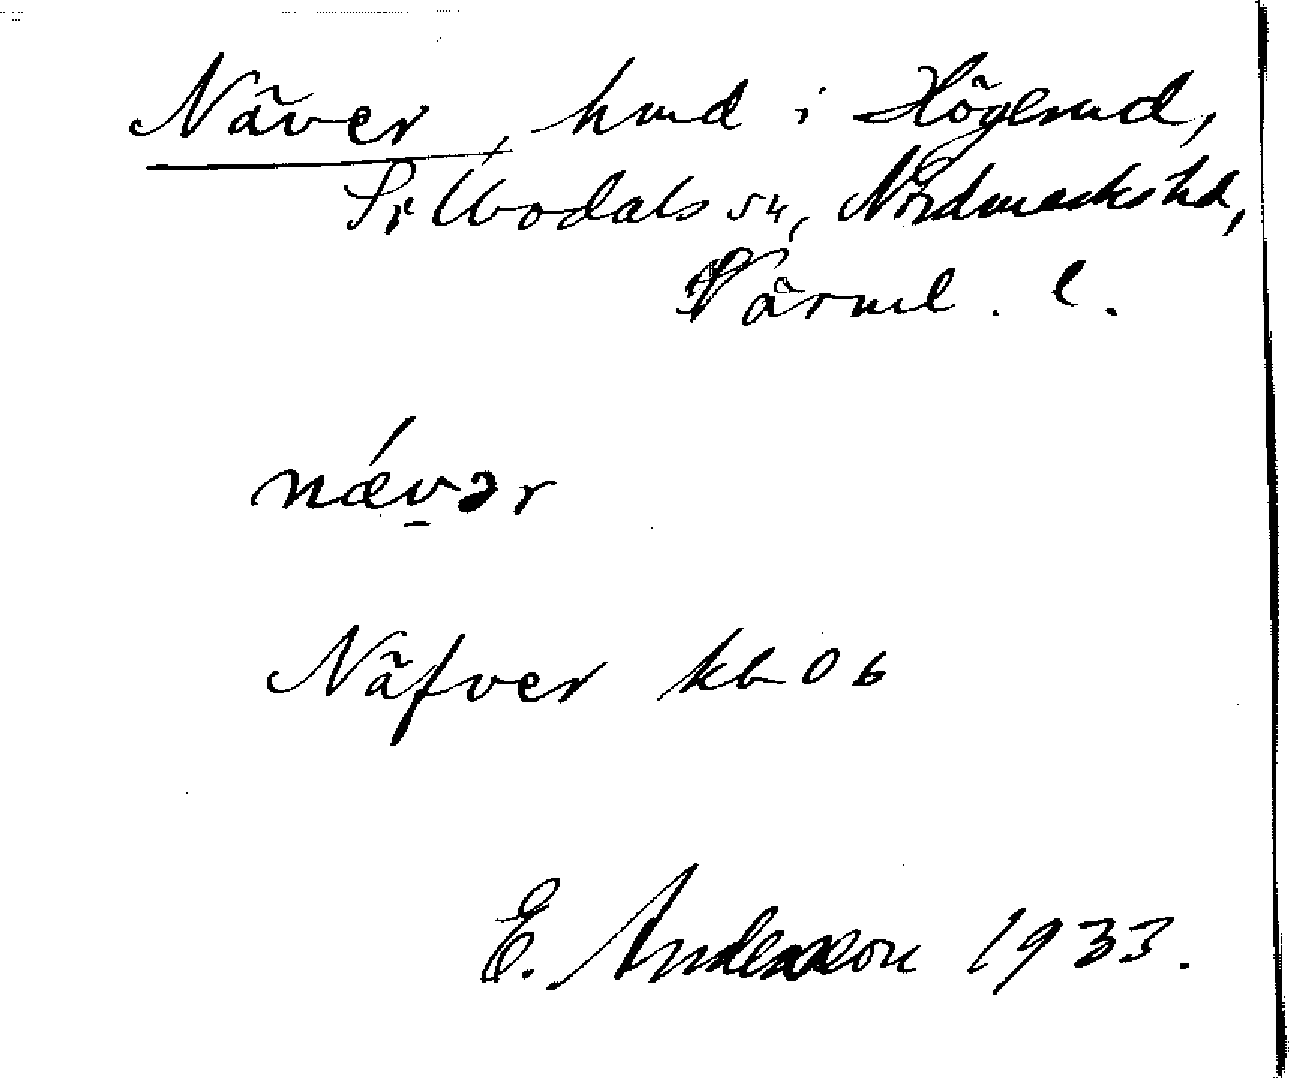 Näver, hmd i Högerud,
Silbodals sn, Nordmarks hd,
Värml. l.
nǽv̠ər
Näfver kb 06
E. Andersson 1933.